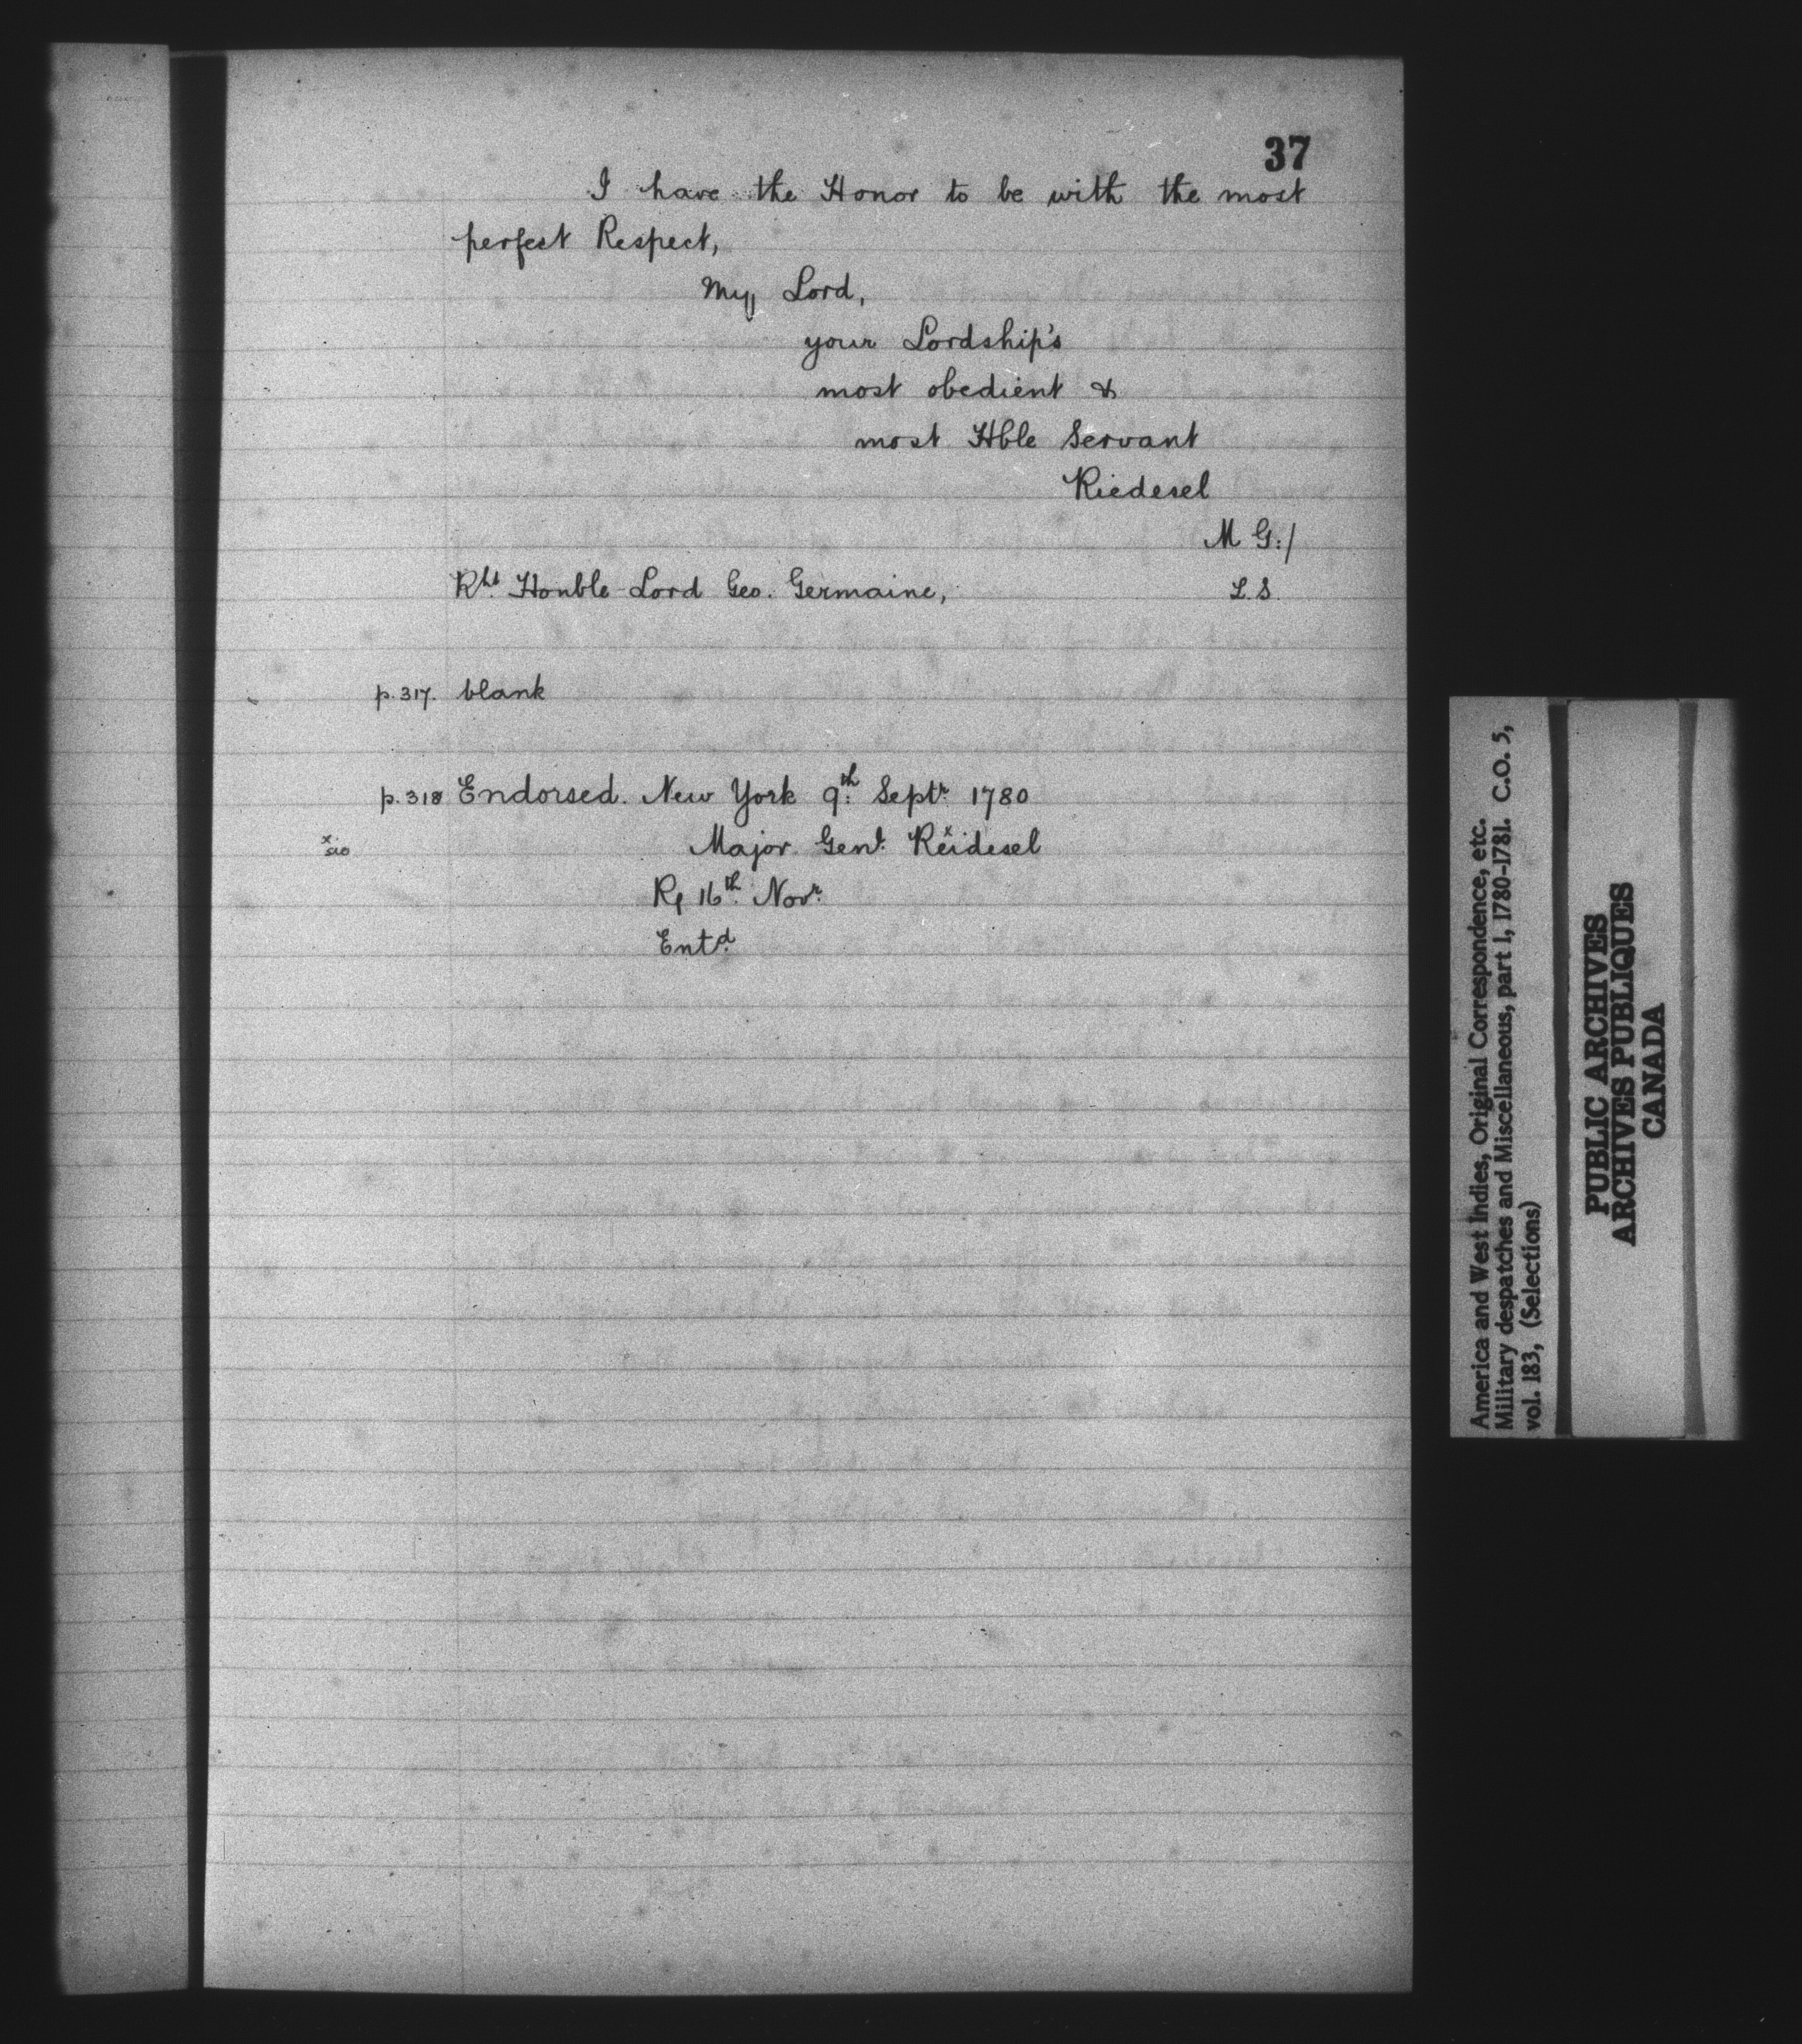 37
I have the Honor to be with the most
perfect Respect,
My Lord,
your Lordship's
most obedient &
most Hble Servant
Riedesel
M G:/
Rht. Honble Lord Geo. Germaine,
L.S.
p.317. blank
p.318 Endorsed. New York 9th. Septr. 1780
x sic
Major Genl. Reidesel x
R 16th. Novr.
Entd.
America and West Indies, Original Correspondence, etc.
Military despatches and Miscellaneous, part 1, 1780-1781. C.O. 5,
vol. 183, (Selections)
PUBLIC ARCHIVES
ARCHIVES PUBLIQUES
CANADA